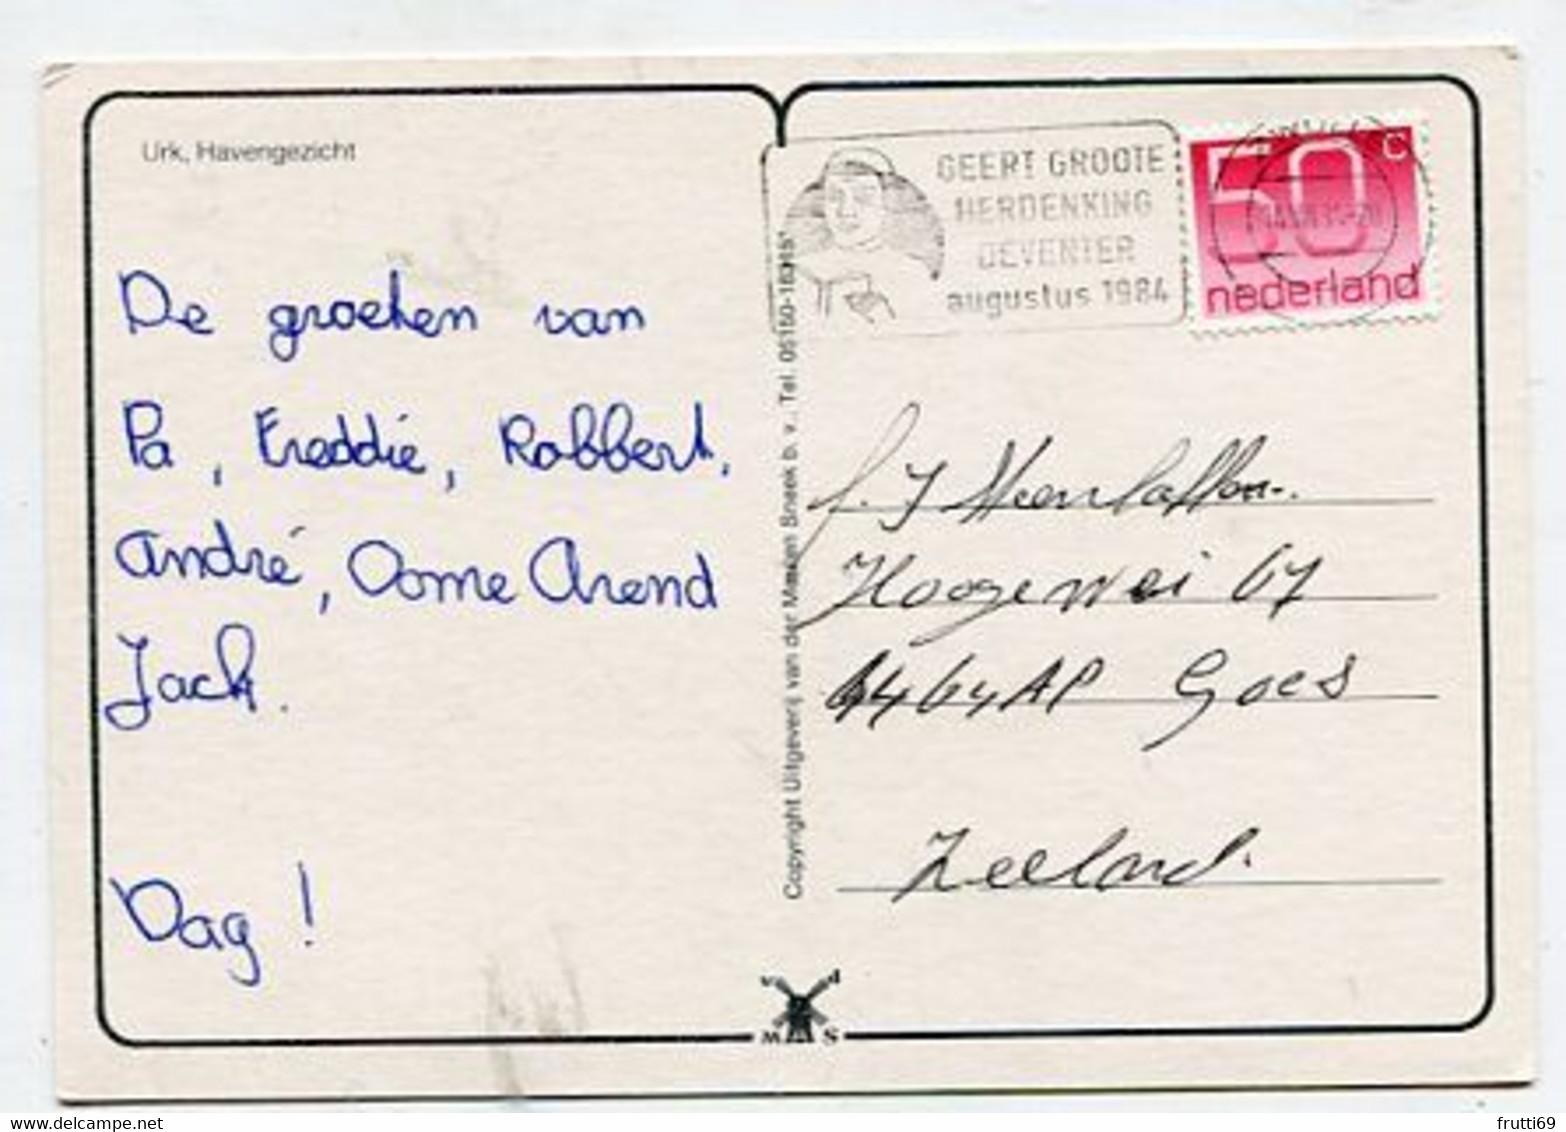 Urk, Havengezicht
De groeten van
Pa, Freddie, Robbert,
André, Oome Arend
Jack.
Dag!
Copyright Uitgeverij van der Meulen Sneek b. v., Tel. 05150-16315*
GEERT GROOTE
HERDENKING
DEVENTER
augustus 1984
50 c
nederland
f. J
Hoogewei 67
4464AP Goes
Zeeland.
v d
M S
frutti69